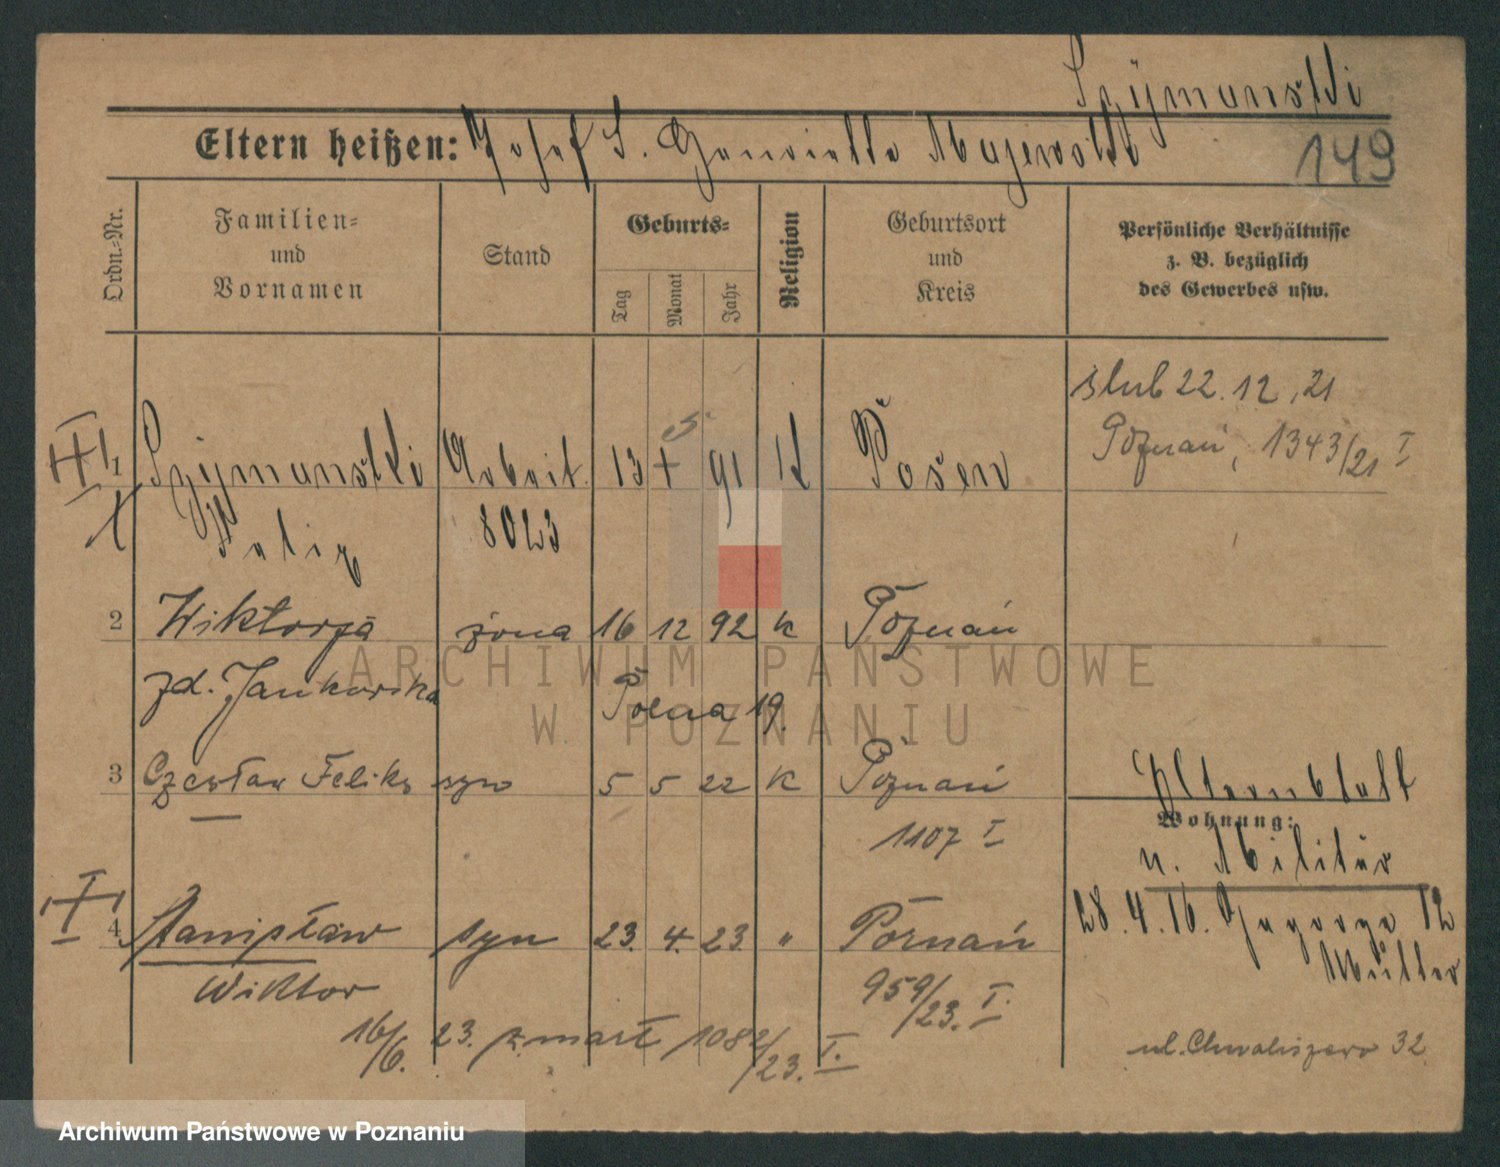 Szymanski
149
Eltern heißen: Josef S. Henriette Majewski
Ordn.-Nr.
Familien-
und
Vornamen
Stand
Geburts-
Tag
Monat
Jahr
Religion
Geburtsort
und
Kreis
Persönliche Verhältnisse
z. B. bezüglich
des Gewerbes usw.
ślub 22.12.21
Poznań, 1343/21 I
5
1 Szymanski Arbeit. 13 91 K Posen
Felix 8023
2 Wiktorja żona 16 12 92 K Poznań
zd. Jankowska Polna 19.
3 Czesław Feliks syn 5 5 22 K Poznań
1107 I
Elternblatt
Wohnung:
n. Militär
4 Stanisław syn 23. 4. 23. " Poznań
28.4.16. 12
Müller
Wiktor 959/23. I.
16/6. 23. zmarł 1082/23. I.
ul. Chwaliszewo 32
ARCHIWUM PAŃSTWOWE
W POZNANIU
Archiwum Państwowe w Poznaniu